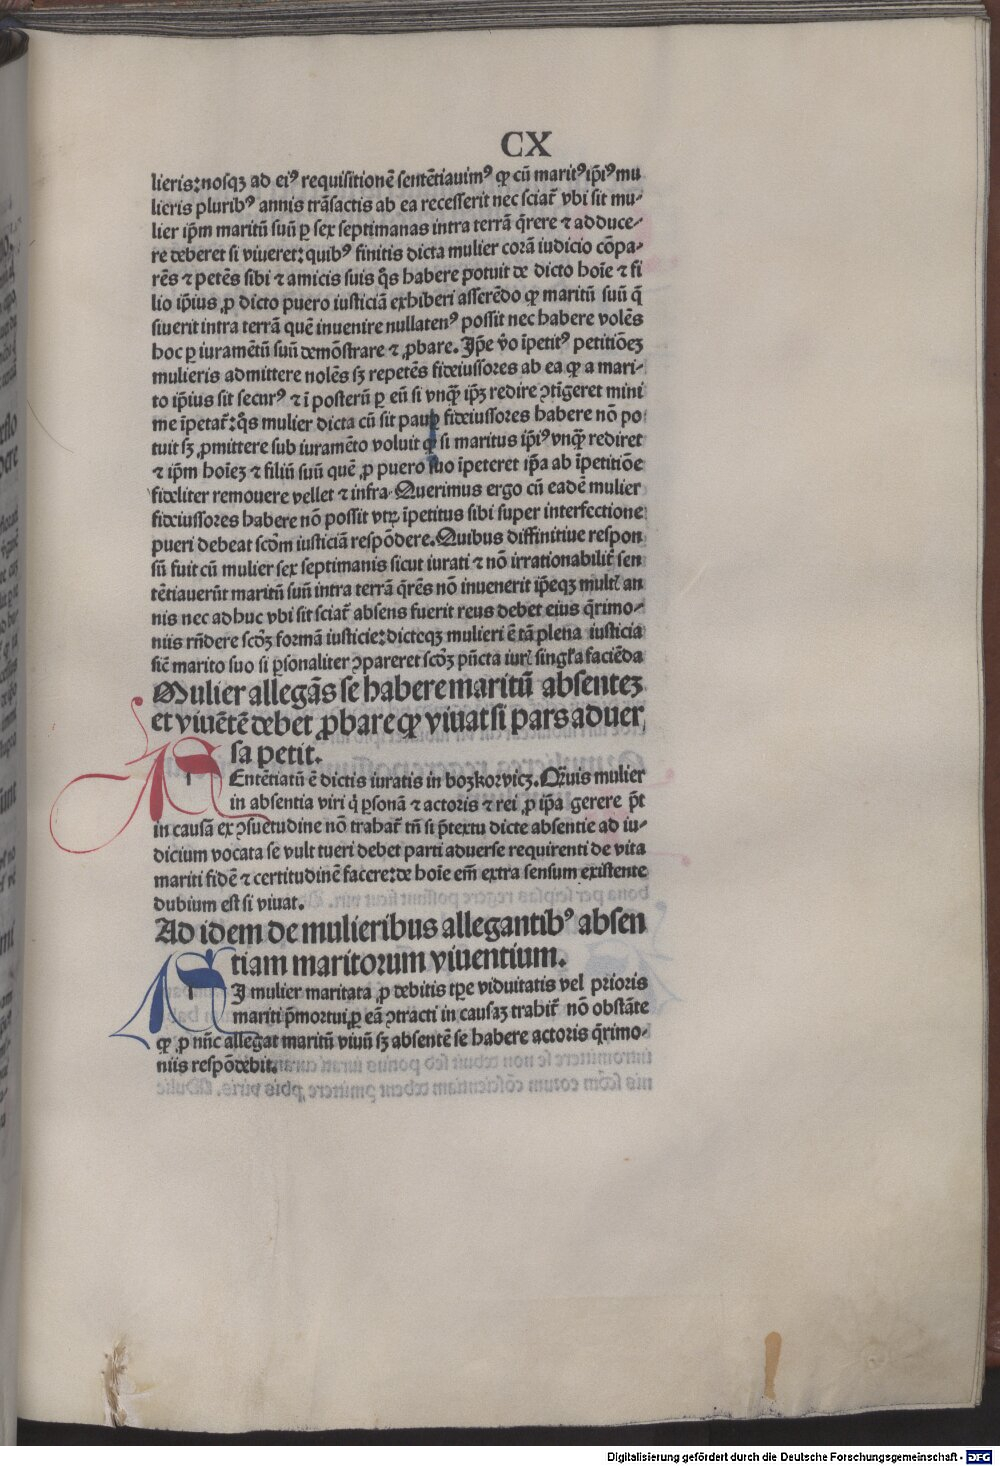 CX
lieris:nosqꝫ ad eiꝰ requisitionē sentētiauimꝰ ꝙ cū maritꝰ ip̄iꝰ mu
lieris pluribꝰ annis trāsactis ab ea recesserit nec sciat̄ vbi sit mu⸗
lier ip̄m maritū suū ꝑ sex septimanas intra terrā q̄rere ⁊ adduce⸗
re deberet si viueret: quibꝰ finitis dicta mulier corā iudicio cōpa⸗
rēs ⁊ petēs sibi ⁊ amicis suis q̄s habere potuit de dicto hoīe ⁊ fi
lio ip̄ius ꝓ dicto puero iusticiā exhiberi asserēdo ꝙ maritū suū q̄
siuerit intra terrā quē inuenire nullatenꝰ possit nec habere volēs
hoc ꝑ iuramētū suū demōstrare ⁊ ꝓbare. Ip̄e v̄o īpetitꝰ petitiōeꝫ
mulieris admittere nolēs sꝫ repetēs fideiussores ab ea ꝙ a mari⸗
to ip̄ius sit securꝰ ⁊ ī posterū ꝑ eū si vnꝙ̄ ip̄ꝫ redire ꝯtīgeret mini
me īpetat̄: q̄s mulier dicta cū sit pauꝑ fideiussores habere nō po
tuit sꝫ ꝓmittere sub iuramēto voluit ꝙ si maritus ip̄iꝰ vnꝙ̄ rediret
⁊ ip̄m hoīeꝫ ⁊ filiū suū quē ꝓ puero suo īpeteret ip̄a ab īpetitiōe
fideliter remouere vellet ⁊ infra. Querimus ergo cū eadē mulier
fideiussores habere nō possit vtꝝ īpetitus sibi super interfectione
pueri debeat scd̄m iusticiā respōdere. Quibus diffinitiue respon
sū fuit cū mulier sex septimanis sicut iurati ⁊ nō irrationabilit̄ sen
tētiauerūt maritū suū intra terrā q̄rēs nō inuenerit ip̄eqꝫ mult̄ an
nis nec adhuc vbi sit sciat̄ absens fuerit reus debet eius q̄rimo⸗
niis rn̄dere scd̄ꝫ formā iusticie: dicteqꝫ mulieri ē tā plena iusticia
sic̄ marito suo si ꝑsonaliter ꝯpareret scd̄ꝫ pūcta iur̄ singl̄a faciēda
Mulier allegās se habere maritū absenteꝫ
et viuētē debet ꝓbare ꝙ viuat si pars aduer
sa petit.
Entētiatū ē dictis iuratis in boꝫkorvicꝫ. Q̄uis mulier
in absentia viri q̄ ꝑsonā ⁊ actoris ⁊ rei ꝓ ip̄a gerere p̄t
in causā ex ꝯsuetudine nō trahat̄ tn̄ si p̄textu dicte absentie ad iu⸗
dicium vocata se vult tueri debet parti aduerse requirenti de vita
mariti fidē ⁊ certitudinē facere: de hoīe em̄ extra sensum existente
dubium est si viuat.
Ad idem de mulieribus allegantibꝰ absen
tiam maritorum viuentium.
I mulier maritata ꝓ debitis tp̄e viduitatis vel prioris
mariti p̄mortui ꝑ eā ꝯtracti in causaꝫ trahit̄ nō obstāte
ꝙ ꝓ nūc allegat maritū viuū sꝫ absentē se habere actoris q̄rimo⸗
niis respōdebit.
Digitalisierung gefördert durch die Deutsche Forschungsgemeinschaft - DFG